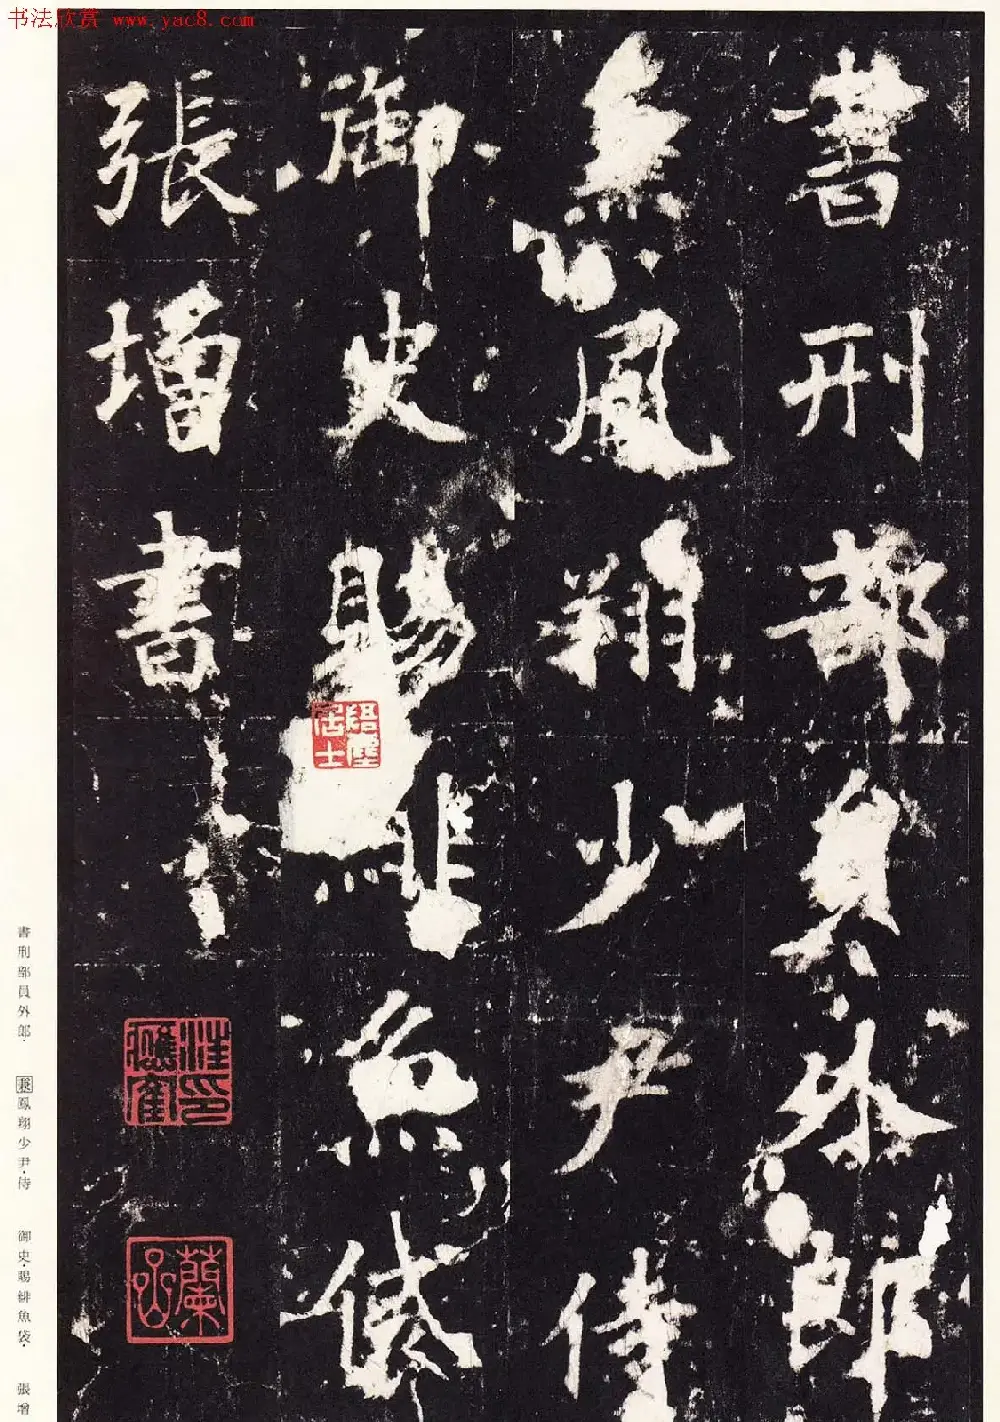 书法欣赏 www.yac8.com
書刑部員外郎
兼鳳翔少尹侍
御史賜緋魚袋
張增書
悟塵居士
蘭
書刑部員外郎· 兼鳳翔少尹·侍 御史·賜緋魚袋· 張增